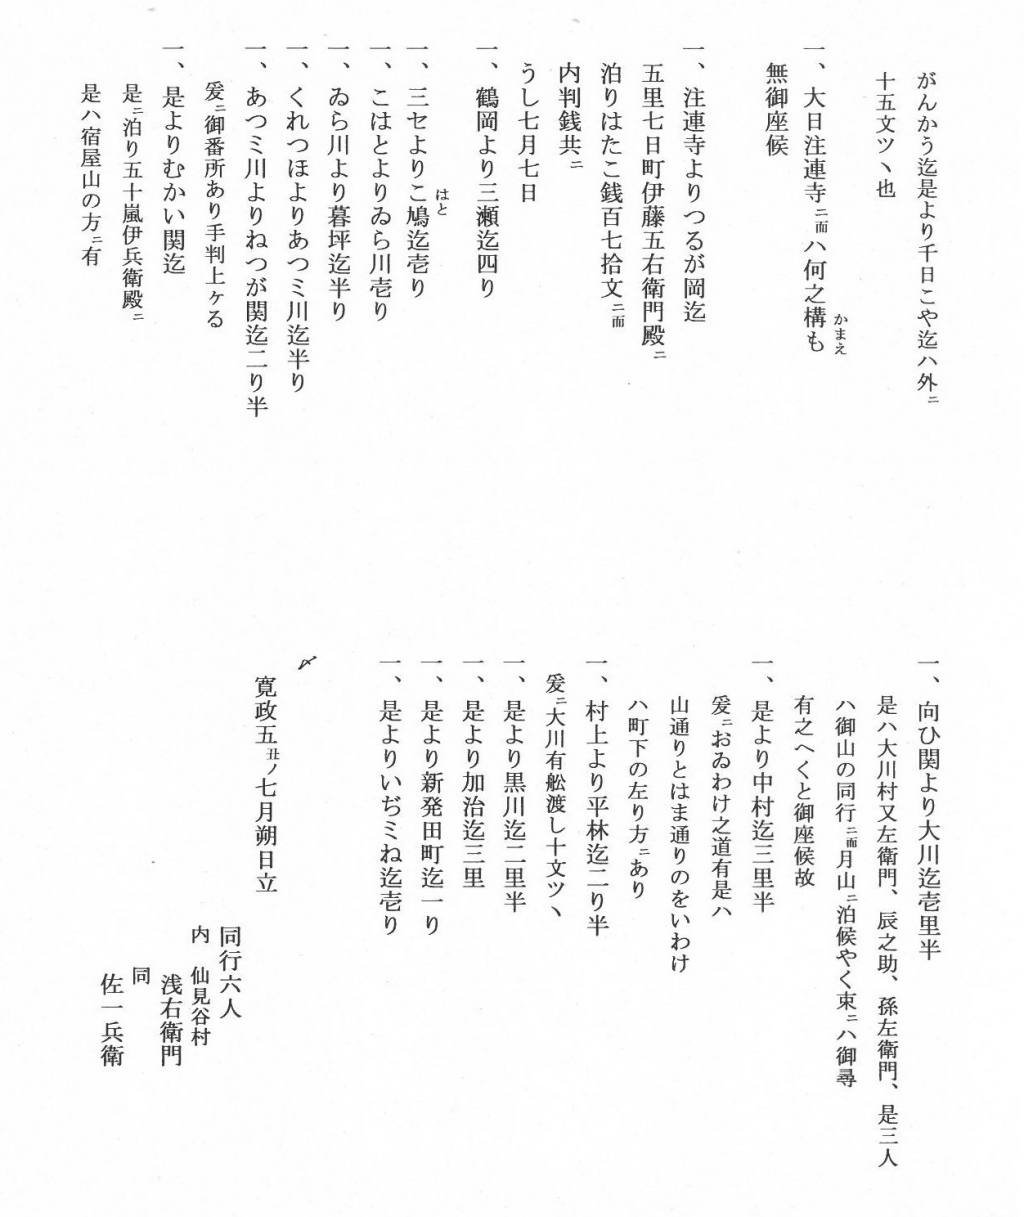 がんかう迄是より千日こや迄ハ外ニ
十五文ツヽ也
一、大日注連寺ニ而ハ何之構もかまえ
無御座候
一、注連寺よりつるが岡迄
五里七日町伊藤五右衛門殿ニ
泊りはたこ銭百七拾文ニ而
内判銭共ニ
うし七月七日
一、鶴岡より三瀬迄四り
一、三セよりこ鳩はと迄壱り
一、こはとよりゐら川壱り
一、ゐら川より暮坪迄半り
一、くれつほよりあつミ川迄半り
一、あつミ川よりねつが関迄二り半
爰ニ御番所あり手判上ヶる
一、是よりむかい関迄
是ニ泊り五十嵐伊兵衛殿ニ
是ハ宿屋山の方ニ有
一、向ひ関より大川迄壱里半
是ハ大川村又左衛門、辰之助、孫左衛門、是三人
ハ御山の同行ニ而月山ニ泊候やく束ニハ御尋
有之へくと御座候故
一、是より中村迄三里半
爰ニおゐわけ之道有是ハ
山通りとはま通りのをいわけ
ハ町下の左り方ニあり
一、村上より平林迄二り半
爰ニ大川有舩渡し十文ツヽ
一、是より黒川迄二里半
一、是より加治迄三里
一、是より新発田町迄一り
一、是よりいぢミね迄壱り
〆
寛政五丑ノ七月朔日立
同行六人
内 仙見谷村
浅右衛門
同
佐一兵衛